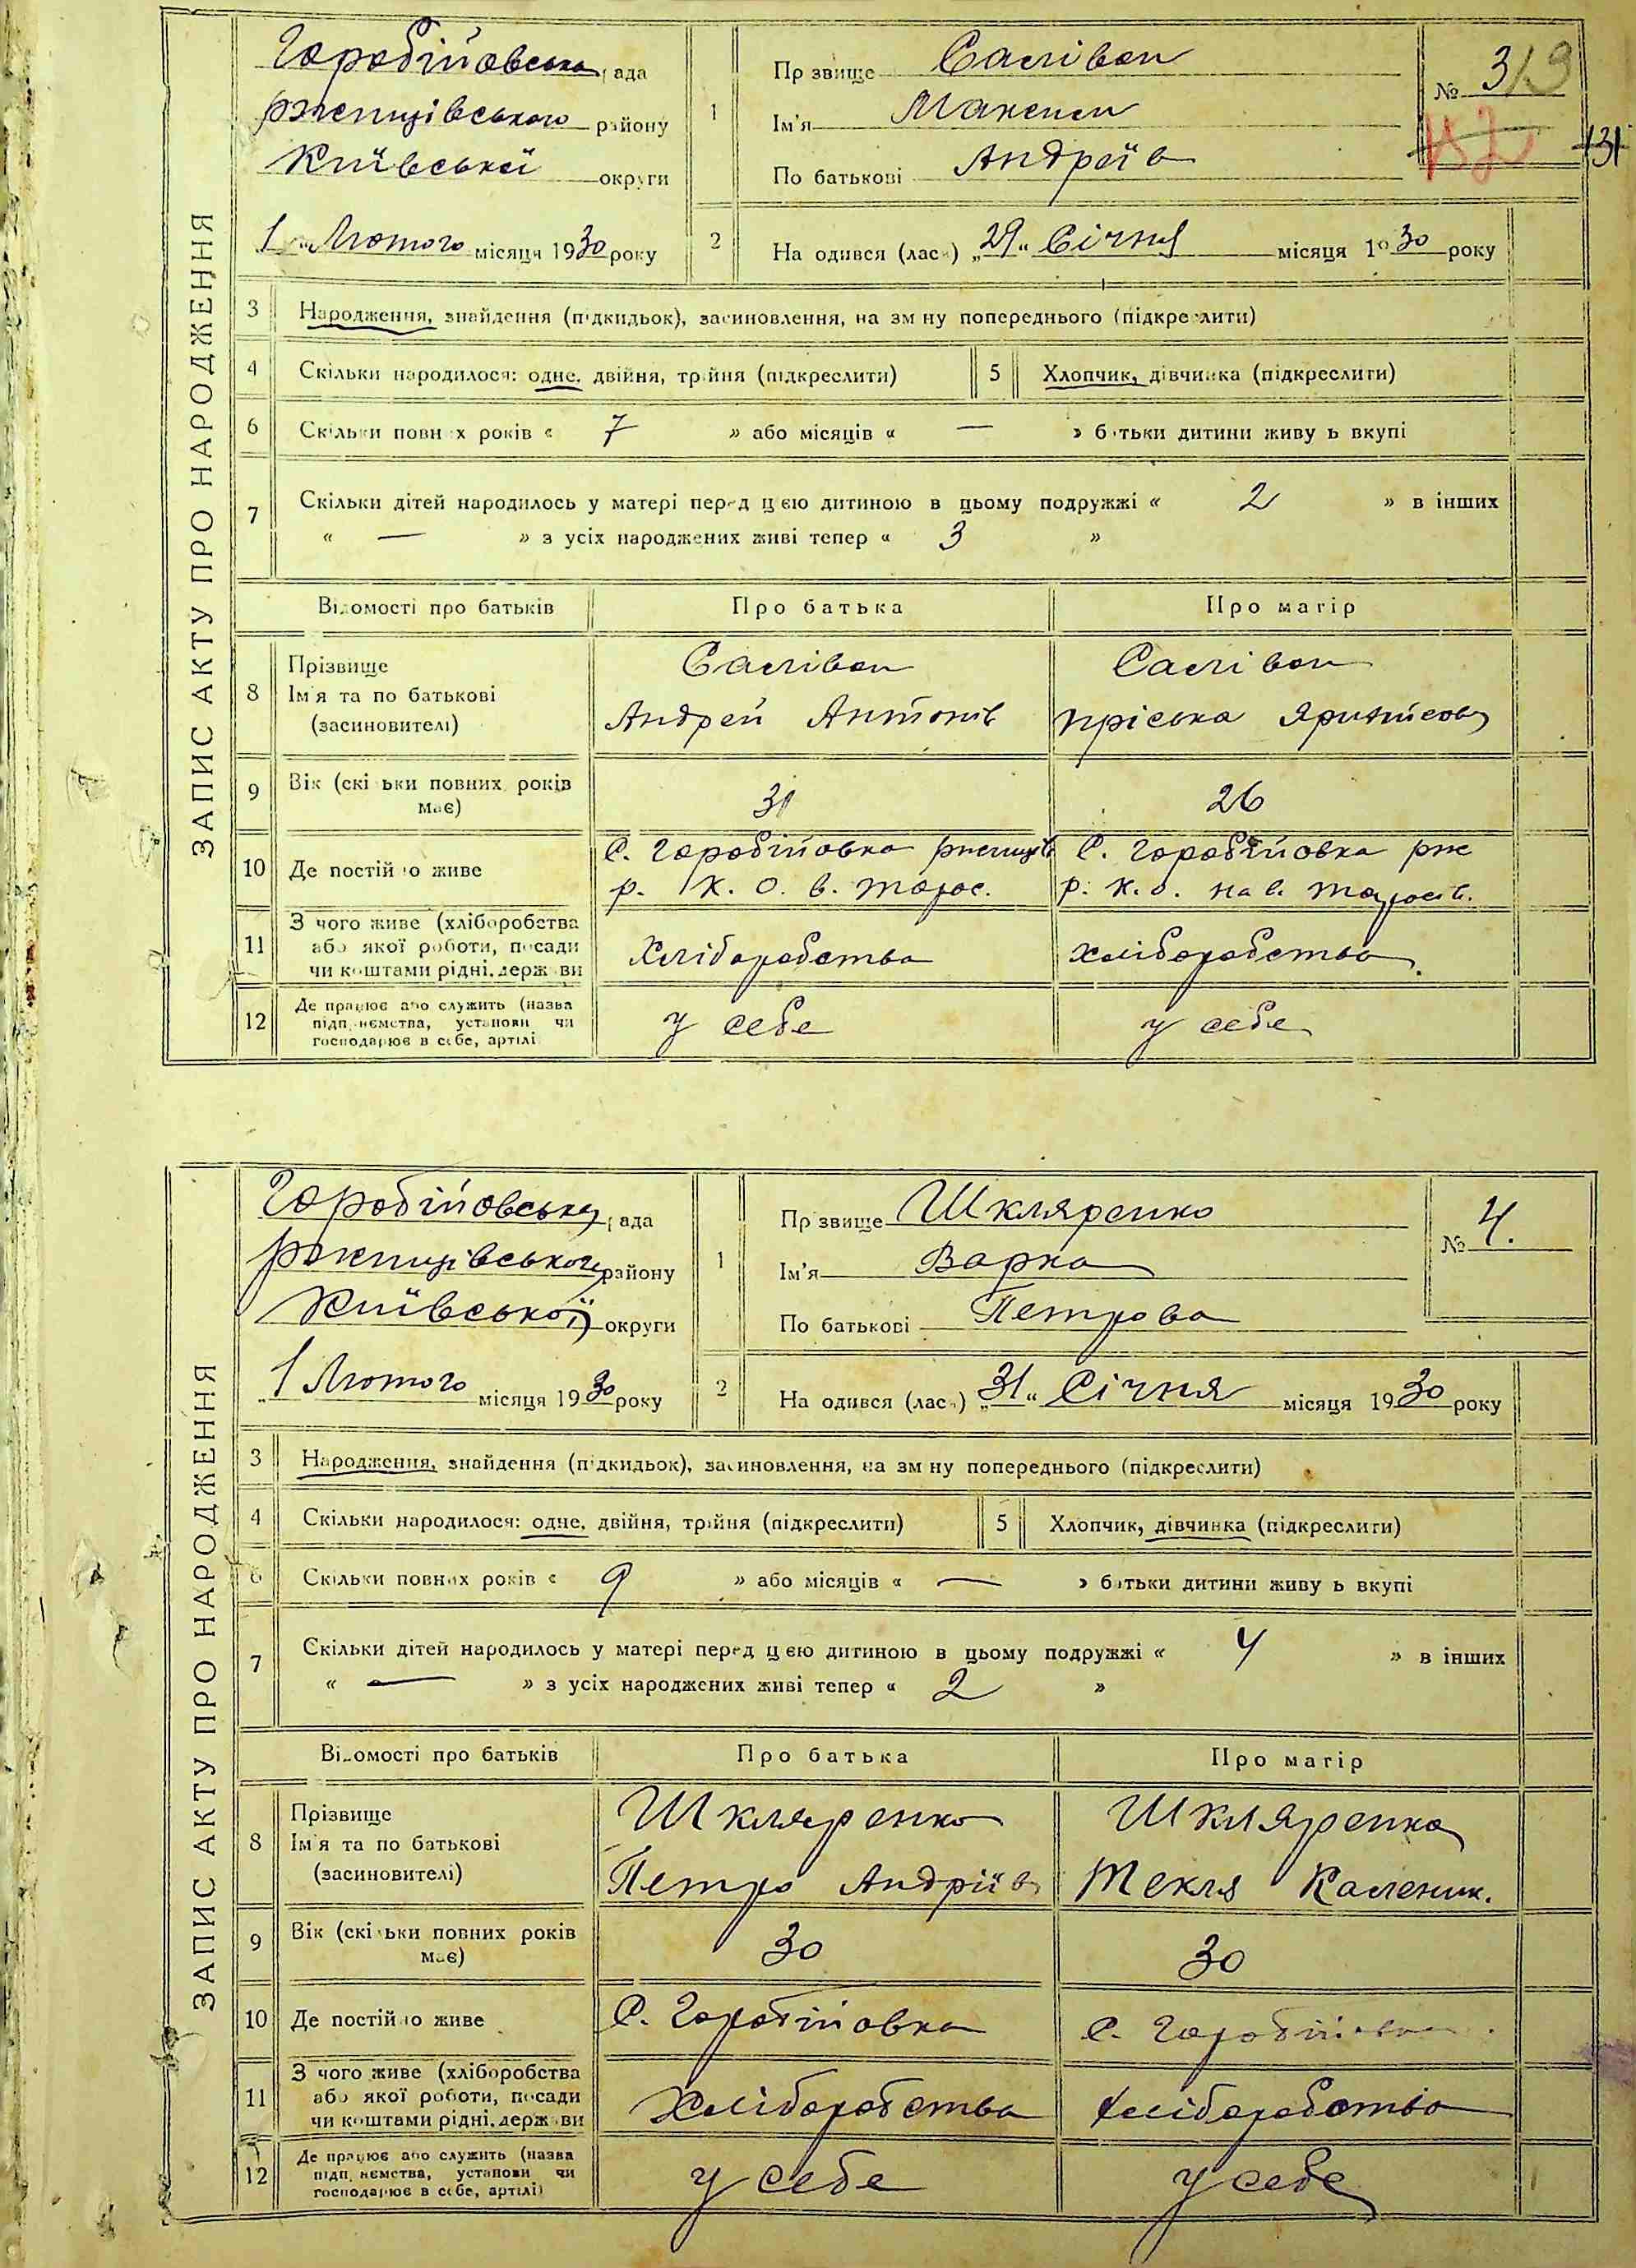 ЗАПИС АКТУ ПРО НАРОДЖЕННЯ
Горобійовська рада
Ржищівського району
Київської округи
1 Лютого місяця 1930 року
1 Прізвище Салівон
Ім'я Максим
По батькові Андреїв
№ 3/9
131
2 Народився (лась) „29" Січня місяця 1930 року
3 Народження, знайдення (підкидьок), засиновлення, на зміну попереднього (підкреслити)
4 Скільки народилося: одне, двійня, трійня (підкреслити) 5 Хлопчик, дівчинка (підкреслити)
6 Скільки повних років « 7 » або місяців « — » батьки дитини живуть вкупі
7 Скільки дітей народилось у матері перед цією дитиною в цьому подружжі « 2 » в інших
« — » з усіх народжених живі тепер « 3 »
Відомості про батьків Про батька Про матір
8 Прізвище Ім'я та по батькові (засиновителі)
Салівон Салівон
Андрей Антонів Пріська
9 Вік (скільки повних років має) 31 26
10 Де постійно живе
С. Горобійовка Ржищів С. Горобійовка Рже
р. К. О. в. р. К. О. на в.
11 З чого живе (хліборобства або якої роботи, посади чи коштами рідні, держави
Хліборобства хліборобства
12 Де працює або служить (назва підприємства, установи чи господарює в себе, артілі)
у себе у себе
ЗАПИС АКТУ ПРО НАРОДЖЕННЯ
Горобійовська рада
Ржищівського району
Київської округи
1 Лютого місяця 1930 року
1 Прізвище Шкляренко
Ім'я Варка
По батькові Петрова
№ 4.
2 Народився (лась) „31" Січня місяця 1930 року
3 Народження, знайдення (підкидьок), засиновлення, на зміну попереднього (підкреслити)
4 Скільки народилося: одне, двійня, трійня (підкреслити) 5 Хлопчик, дівчинка (підкреслити)
6 Скільки повних років « 9 » або місяців « — » батьки дитини живуть вкупі
7 Скільки дітей народилось у матері перед цією дитиною в цьому подружжі « 4 » в інших
« — » з усіх народжених живі тепер « 2 »
Відомості про батьків Про батька Про матір
8 Прізвище Ім'я та по батькові (засиновителі)
Шкляренко Шкляренко
Петро Андріїв Текля Каленик.
9 Вік (скільки повних років має) 30 30
10 Де постійно живе С. Горобійовка С. Горобійовка
11 З чого живе (хліборобства або якої роботи, посади чи коштами рідні, держави
Хліборобства хліборобства
12 Де працює або служить (назва підприємства, установи чи господарює в себе, артілі)
у себе у себе